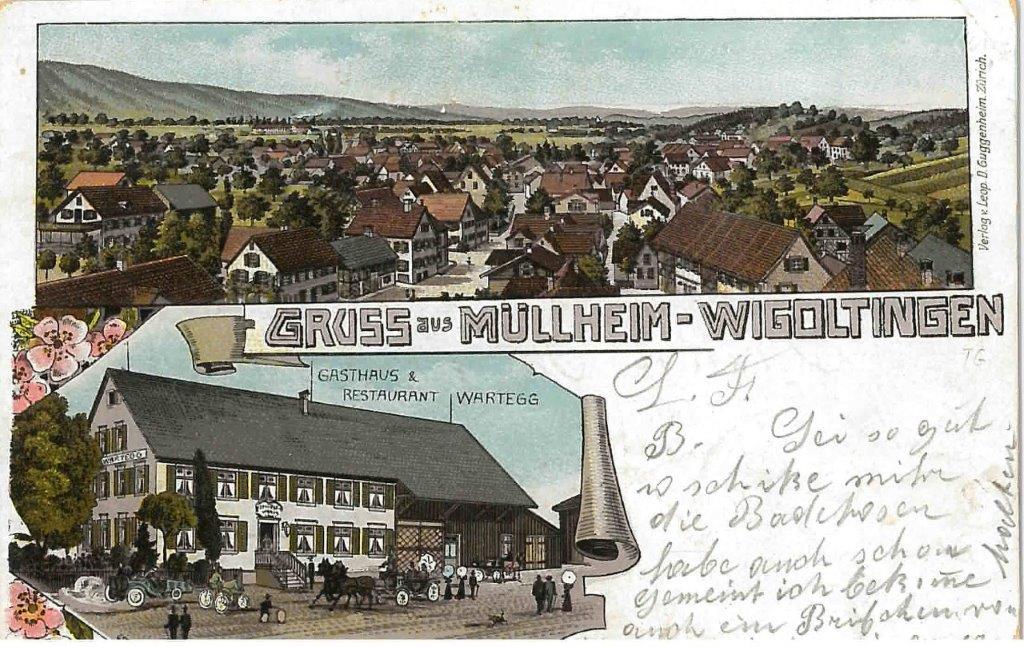 Verlag v. Leop. D. Guggenheim. Zürich.
GRUSS aus MÜLLHEIM-WIGOLTINGEN
TG
GASTHAUS &
RESTAURANT WARTEGG
WARTEGG
L. F.
B. Sei so gut
schike mihr
die Badehosen
habe auch schon
gemeint ich bekome
auch ein Briefchen von